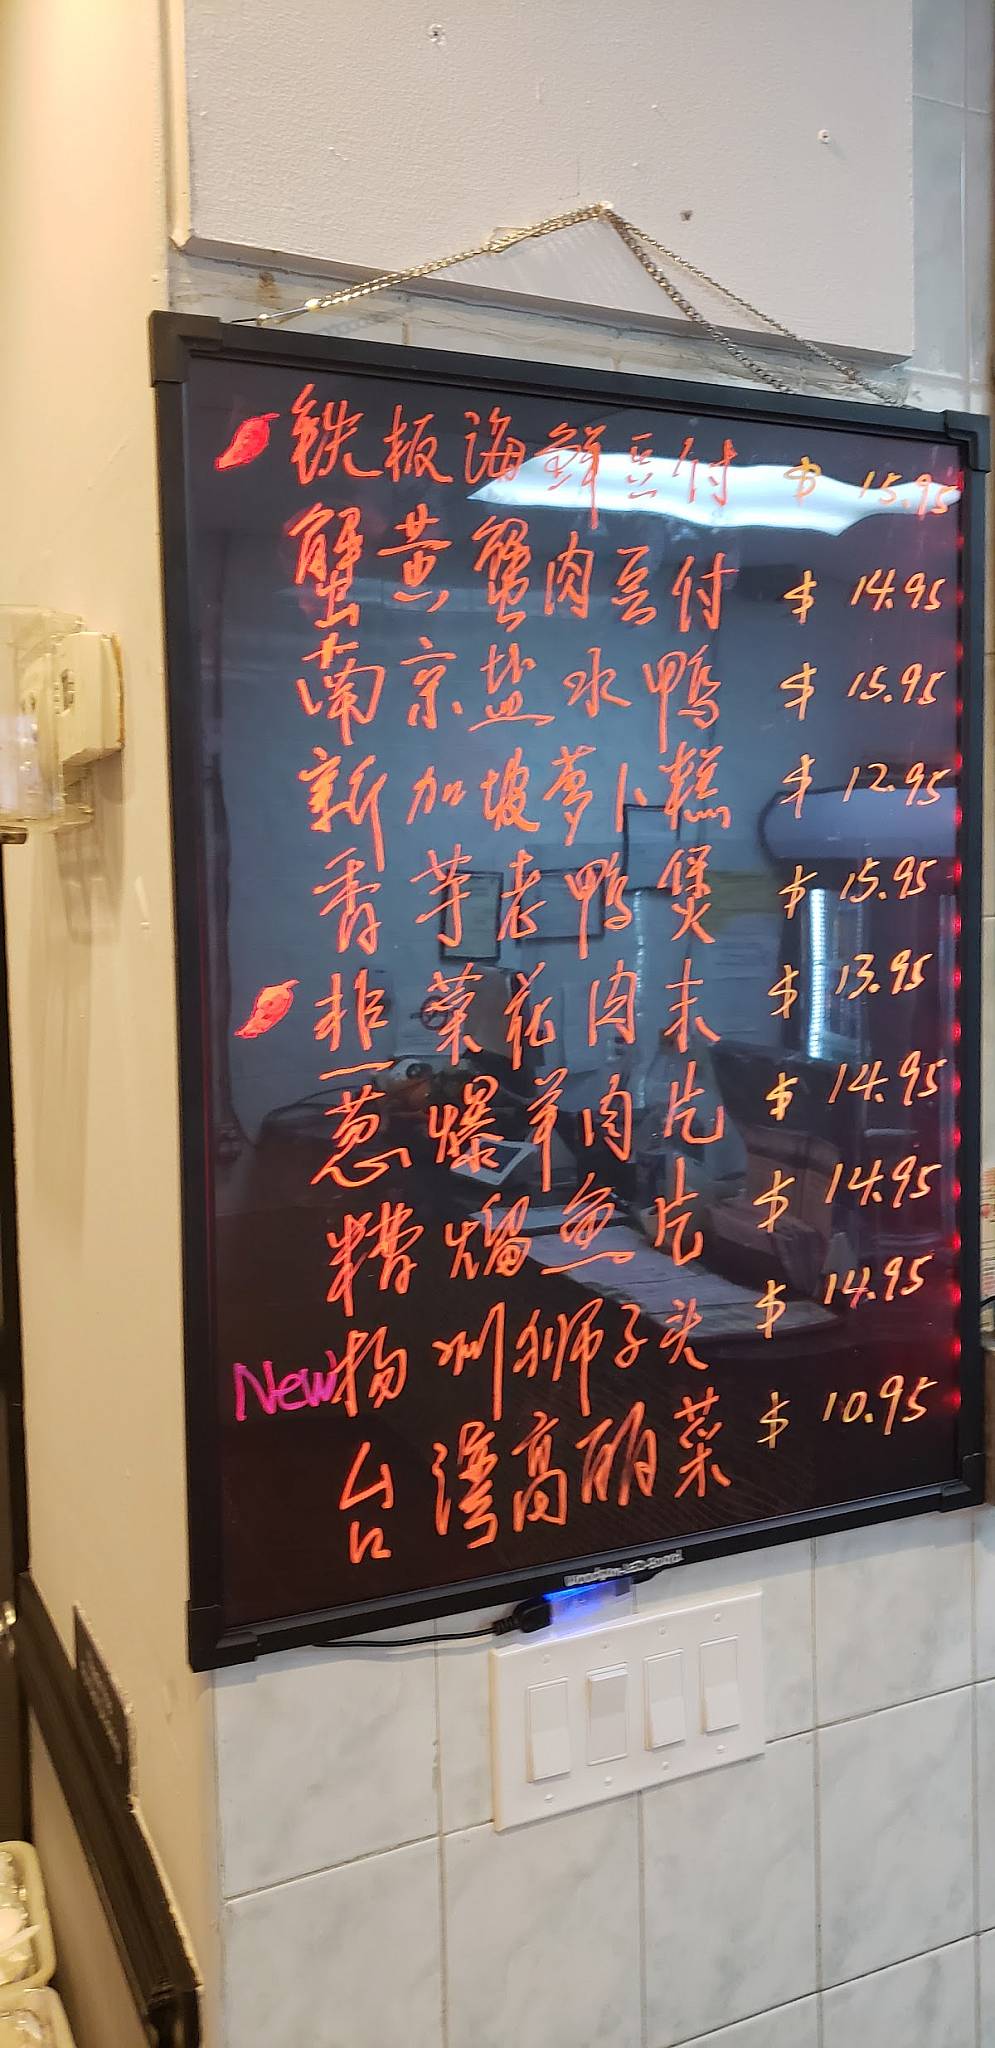 铁板海鲜豆付 $ 15.95
蟹黄蟹肉豆付 $ 14.95
南京盐水鸭 $ 15.95
新加坡萝卜糕 $ 12.95
香芋老鸭煲 $ 15.95
韭菜花肉末 $ 13.95
葱爆羊肉片 $ 14.95
糟熘鱼片 $ 14.95
New 扬州狮子头 $ 14.95
台湾高丽菜 $ 10.95